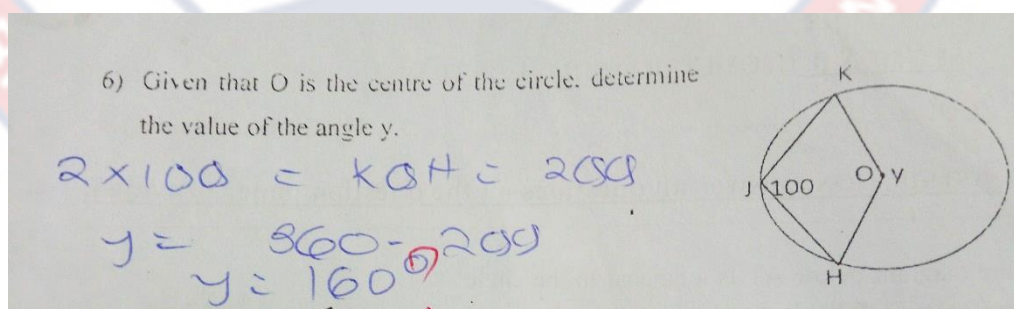 6) Given that O is the centre of the circle. determine
the value of the angle y.
2 x 100 = KOH = 200
y = 360 - 200
y = 160°
K
J 100 O Y
H